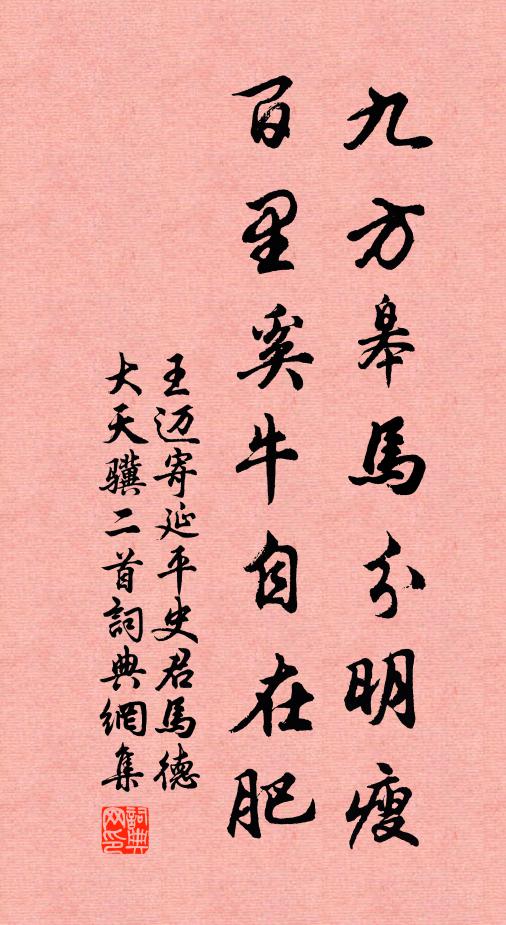 九方皋馬分明瘦
百里奚牛自在肥
王迈寄延平史君馬德
大天驥二首詞典網集
詞典
网印